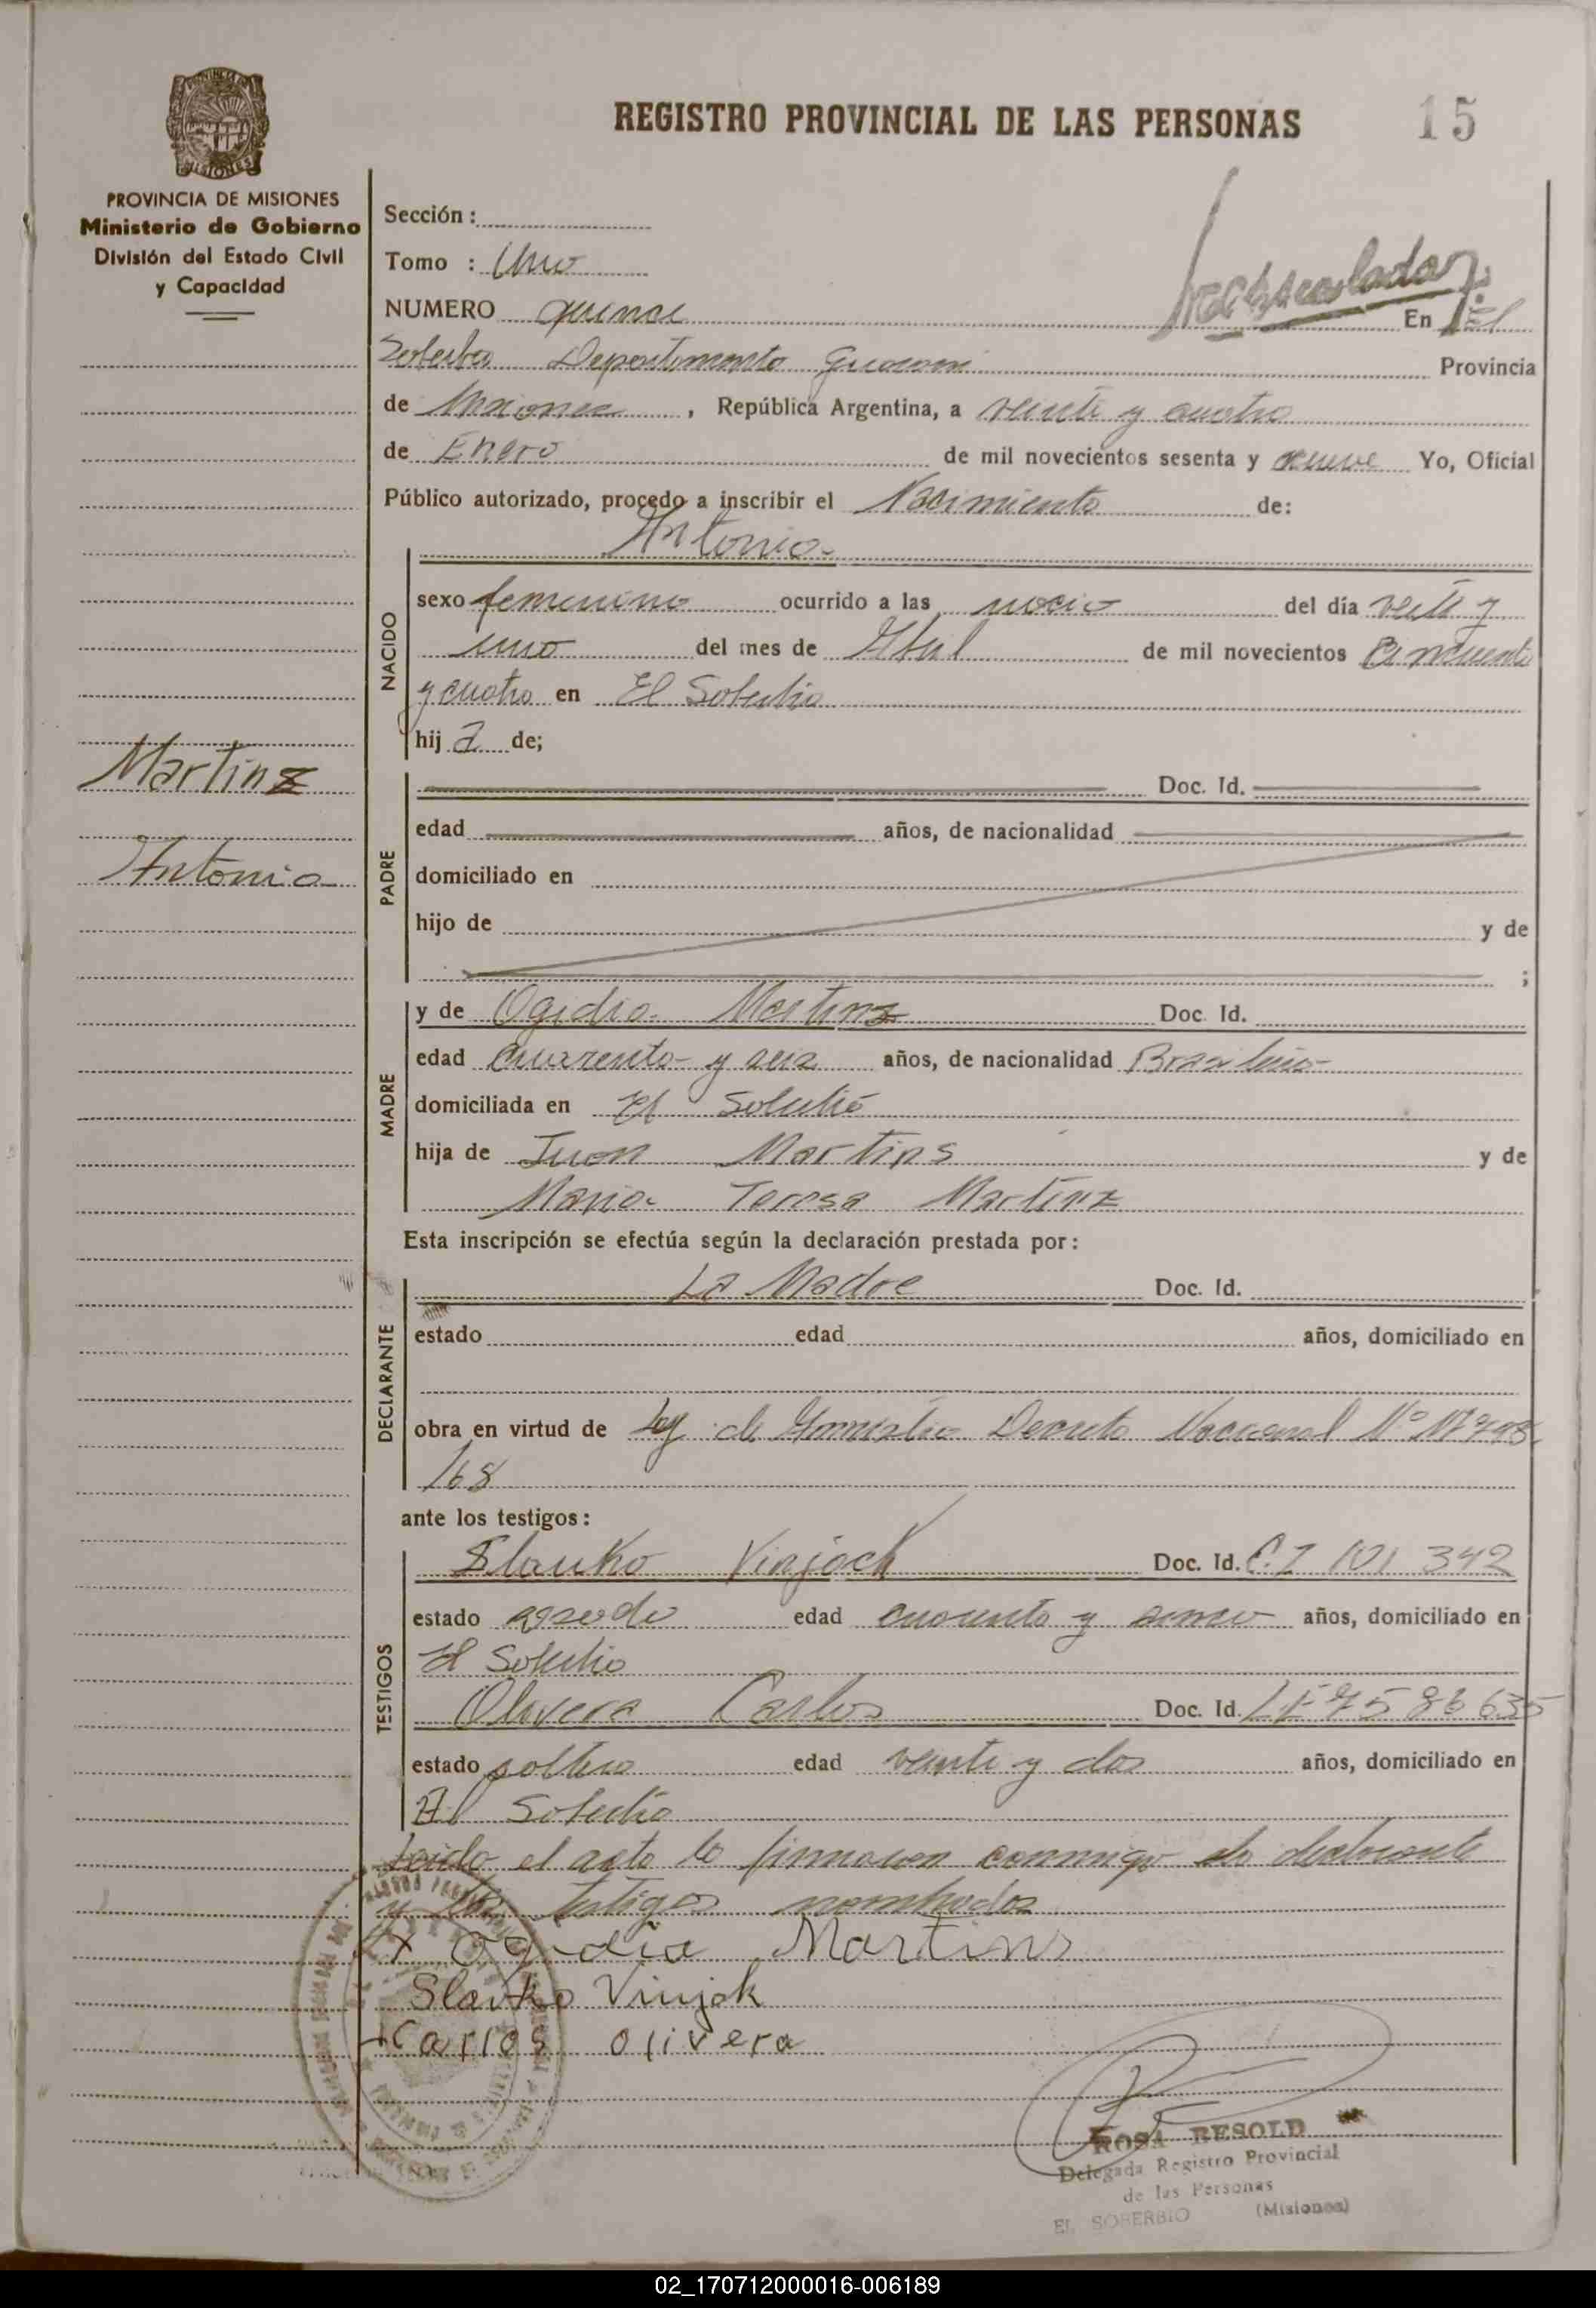 REGISTRO PROVINCIAL DE LAS PERSONAS 15
PROVINCIA DE MISIONES
Ministerio de Gobierno
División del Estado Civil
y Capacidad
Sección :
Tomo : Uno
NUMERO quince En El
Soberbio Departamento Guarani Provincia
de Misiones , República Argentina, a veinte y cuatro
de Enero de mil novecientos sesenta y nueve Yo, Oficial
Público autorizado, procedo a inscribir el Nacimiento de:
Antonia
NACIDO
sexo femenino ocurrido a las del día veite y
uno del mes de Abril de mil novecientos cincuenta
y cuatro en El Soberbio
hij a de;
Martins
Antonia
PADRE
Doc. Id.
edad años, de nacionalidad
domiciliado en
hijo de y de
;
MADRE
y de Ogidia Martins Doc. Id.
edad cuarenta y seis años, de nacionalidad Brasileña
domiciliada en El Soberbio
hija de Juan Martins y de
Maria Teresa Martins
Esta inscripción se efectúa según la declaración prestada por :
DECLARANTE
La Madre Doc. Id.
estado edad años, domiciliado en
obra en virtud de Ley de Amnistia Decreto Nacional Nº
/68
ante los testigos :
TESTIGOS
Slauko Vinjack Doc. Id. C.I 101 342
estado edad cuarenta y años, domiciliado en
El Soberbio
Olivera Carlos Doc. Id. L E 7586635
estado soltero edad veinte y dos años, domiciliado en
El Soberbio
Leida el acta la firmaron conmigo la declarante
y los testigos nombrados
Ogidia Martins
Slavko Vinjak
Carlos Olivera
ROSA RESOLD
Delegada Registro Provincial
de las Personas
EL SOBERBIO (Misiones)
02_170712000016-006189